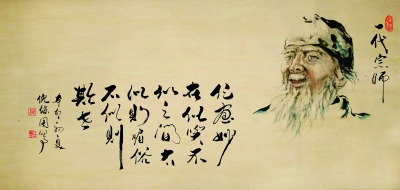 一代宗师
作画妙
在似与不
似之间太
似则媚俗
不似则
欺世
辛卯初夏